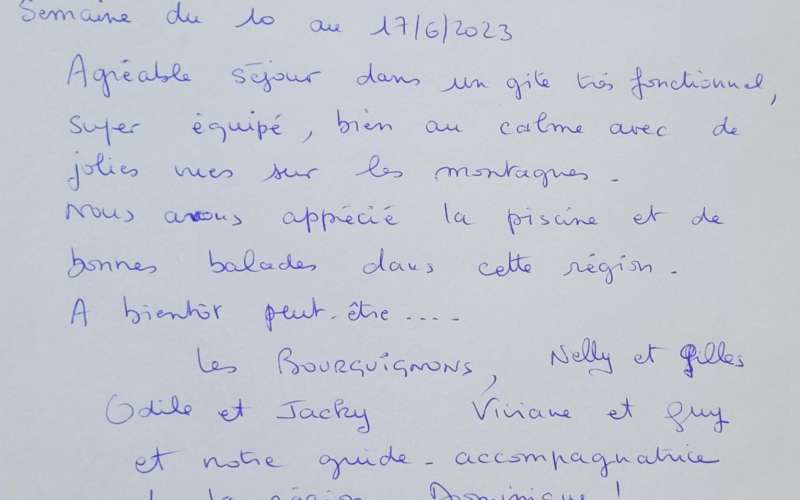 Semaine du 10 au 17/6/2023
Agréable séjour dans un gîte très fonctionnel,
super équipé, bien au calme avec de
jolies vues sur les montagnes.
Nous avons apprécié la piscine et de
bonnes balades dans cette région.
A bientôt peut-être ....
Les BOURGUIGNONS, Nelly et Gilles
Odile et Jacky Viviane et Guy
et notre guide-accompagnatrice
la région Dominique !